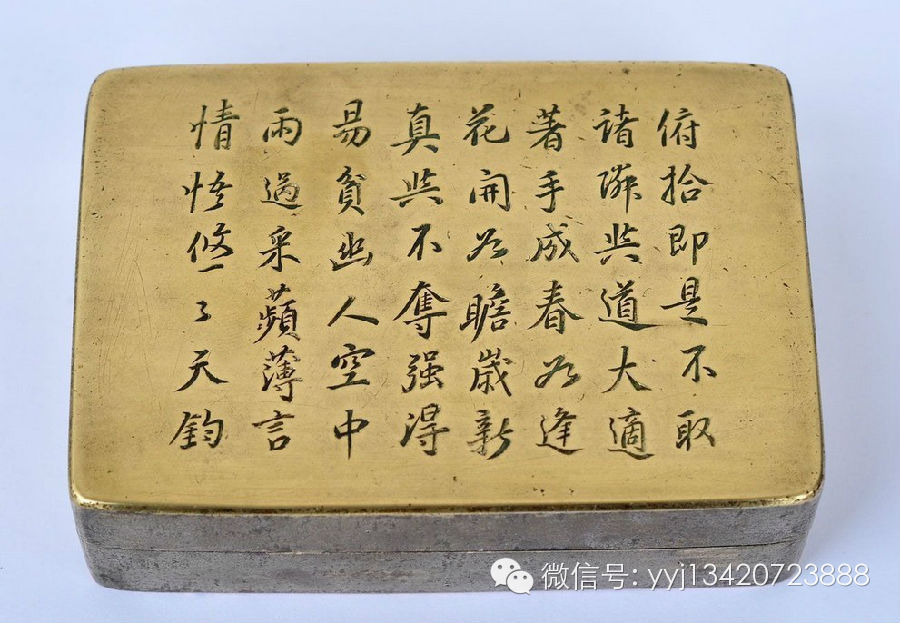 俯拾即是不取
諸隣與道大適
著手成春如逢
花開如瞻歲新
真與不奪强得
易貧幽人空中
雨過采蘋薄言
情悟悠々天鈞
微信号: yyj13420723888